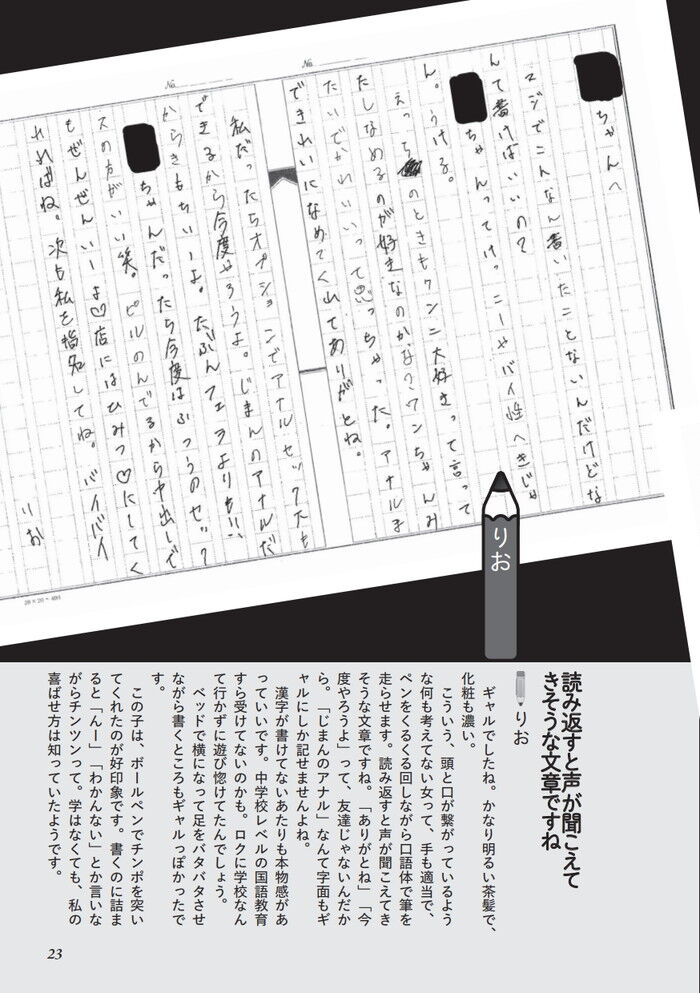 ちゃんへ
マジでこんなん書いたことないんだけどな
んて書けばいいの?
ちゃんってけっこーヤバイ性へきじゃ
ん。うける。
えっちのときもクンニ大好きって言って
たしなめるのが好きなのかな?ワンちゃんみ
たいでかわいいって思っちゃった。アナルま
できれいになめてくれてありがとね。
私だったらオプションでアナルセックスも
できるから今度やろうよ。じまんのアナルだ
からきもちいーよ。たぶんフェラよりもいい
ちゃんだったら今度はふつうのセック
スの方がいい笑。ピルのんでるから中出しで
もぜんぜんいーよ♡店にはひみつ♡にしてく
れればね。次も私を指名してね。バイバイ
りお
No.
No.
20×20=400
りお
読み返すと声が聞こえて
きそうな文章ですね
りお
ギャルでしたね。かなり明るい茶髪で、
化粧も濃い。
こういう、頭と口が繋がっているよう
な何も考えてない女って、手も適当で、
ペンをくるくる回しながら口語体で筆を
走らせます。読み返すと声が聞こえてき
そうな文章ですね。「ありがとね」「今
度やろうよ」って、友達じゃないんだか
ら。「じまんのアナル」なんて字面もギ
ャルにしか記せませんよね。
漢字が書けてないあたりも本物感があ
っていいです。中学校レベルの国語教育
すら受けてないのかも。ロクに学校なん
て行かずに遊び惚けてたんでしょう。
ベッドで横になって足をバタバタさせ
ながら書くところもギャルっぽかったで
す。
この子は、ボールペンでチンポを突い
てくれたのが好印象です。書くのに詰ま
ると「んー」「わかんない」とか言いな
がらチンツンって。学はなくても、私の
喜ばせ方は知っていたようです。
23